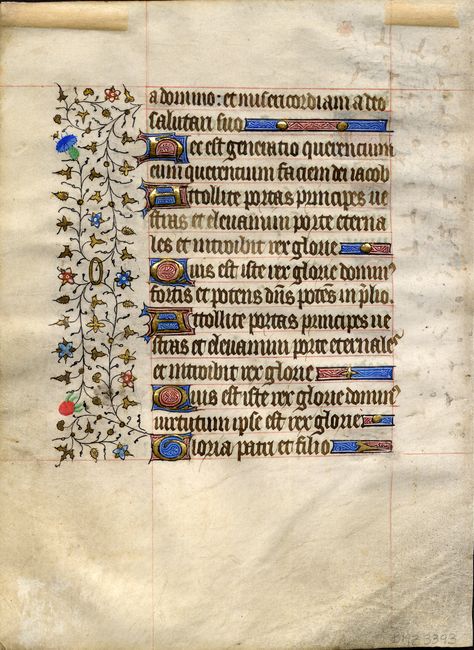 a domino: et misericordiam a deo
salutari suo
Hec est generatio querencium
eum querentium faciem dei iacob
Attollite portas principes ue
stras et eleuamini porte eterna
les et introibit rex glorie
Quis est iste rex glorie dominꝰ
fortis et potens dn̄s potēs in p̄lio.
Attollite portas principes ue
stras et eleuamini porte eternales
et introibit rex glorie
Quis est iste rex glorie dominꝰ
uirtutum ipse est rex glorie
Gloria patri et filio
3393